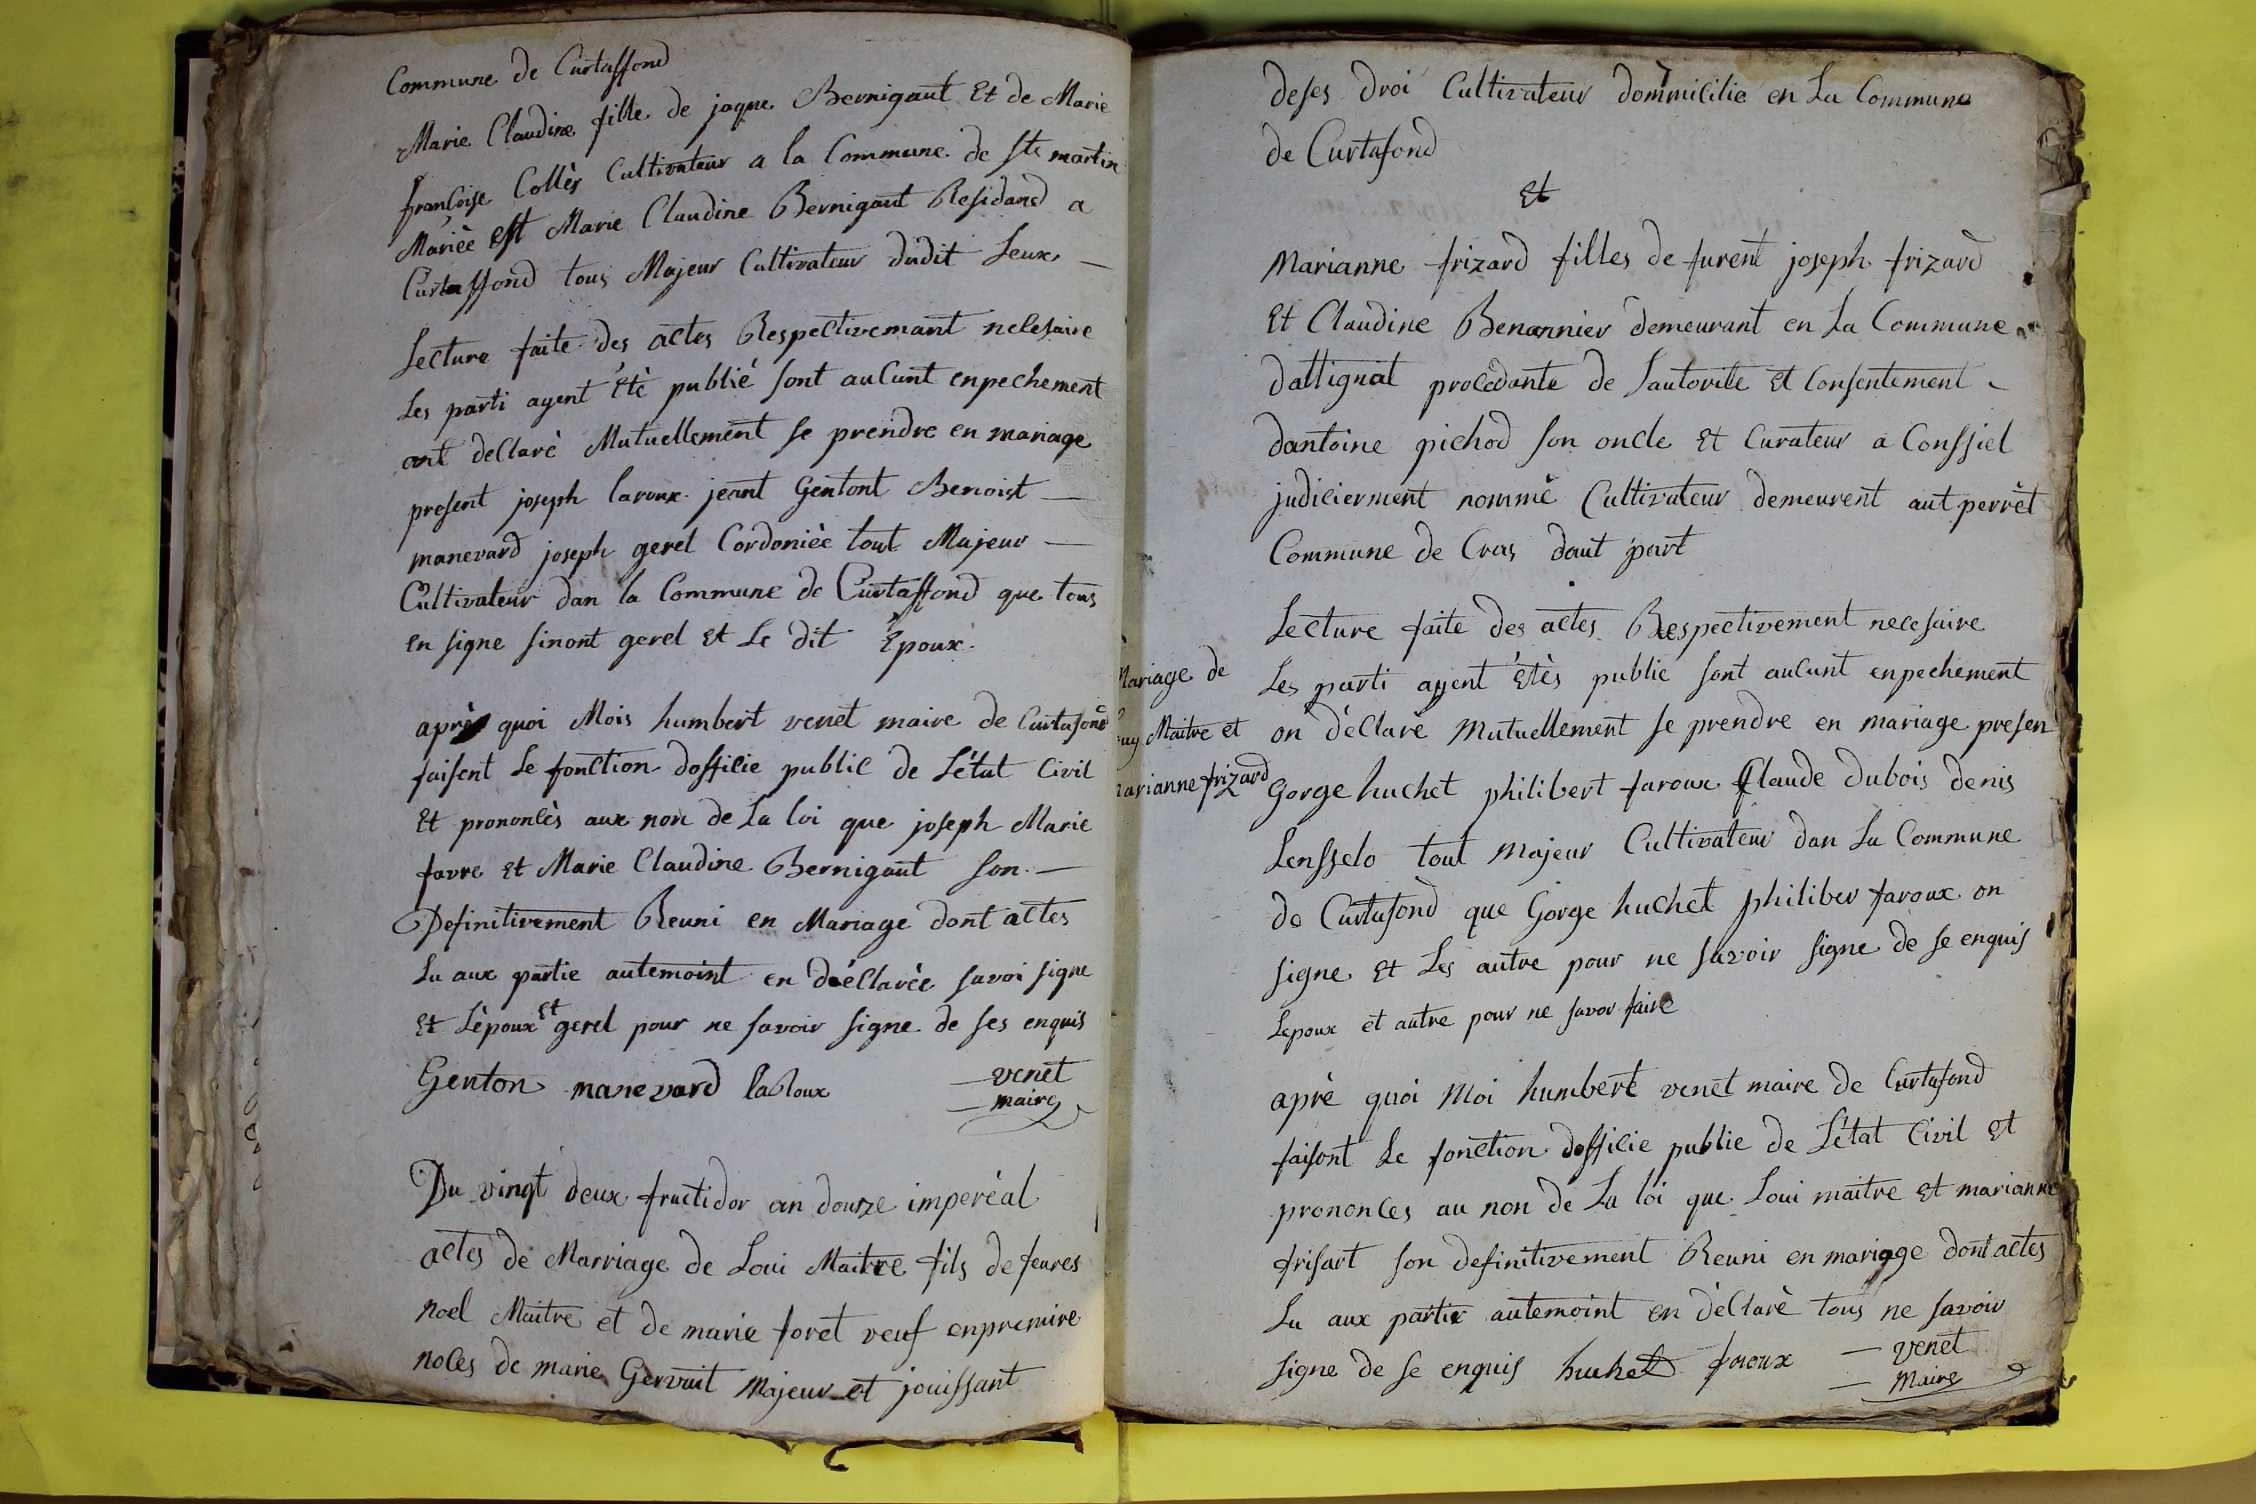 Commune de Curtaffond
Marie Claudine fille de jaque Bernigaut Et de Marie
francoise Collès Cultivateur a la Commune de ste martin
Marièe est Marie Claudine Bernigaut Residand a
Curtaffond tous Majeur Cultivateur dudit Leux
Lecture faite des actes Respectivemant necesaire
Les parti ayent Etè publié sont aucunt enpechement
ont declarè Mutuellement se prendre en mariage
present joseph laroux jeant Gentont Benoist
manevard joseph gerel Cordonièe tout Majeur
Cultivateur dan la Commune de Curtaffond que tous
en signe sinont gerel Et Le dit Epoux
après quoi Mois humbert venet maire de Curtafond
faisent Le fonction dofficie public de Létat Civil
Et prononcès aux non de La loi que joseph Marie
favre Et Marie Claudine Bernigaut son
Definitivement Reuni en Mariage dont actes
Lu aux partie autemoint en dèclarèe savoi signe
Et Lépoux Et gerel pour ne savoir signe de ses enquis
Genton manevard laRoux venet
maire
Du vingt deux fructidor an douze imperéal
actes de Marriage de Loui Maitre fils de feures
noel Maitre et de marie foret veuf enpremire
noces de marie Gervait Majeur et jouissant
deses droi Cultivateur dommicilie en La Commune
de Curtafond
Et
Marianne frizard filles de furent joseph frizard
Et Claudine Benonnier demeurant en La Commune
dattignat procedante de Lautorite Et Consentement
dantoine pichod son oncle Et Curateur a Conssiel
judicierment nommè Cultivateur demeurent aut perrèt
Commune de Cras daut part
Lecture faite des actes Respectivement necesaire
Les parti ayent Etès publie sont aucunt enpechement
on dèclarè Mutuellement se prendre en mariage presen
Mariage de
Luy Maitre et
marianne frizard
Gorge huchet philibert faroux Claude dubois denis
Lensselo tout Majeur Cultivateur dan La Commune
de Curtafond que Gorge huchet philiber faroux on
signe Et Les autre pour ne savoir signe de se enquis
Lepoux et autre pour ne savor faire
aprè quoi Moi humbert venet maire de Curtafond
faisont Le fonction dofficie publie de Létat Civil Et
prononces au non de La loi que Loui maitre Et marianne
frisart son definitivement Reuni en mariage dont actes
Lu aux partie autemoint en dèclarè tous ne savoir
signe de se enquis huchet faroux venet
Maire